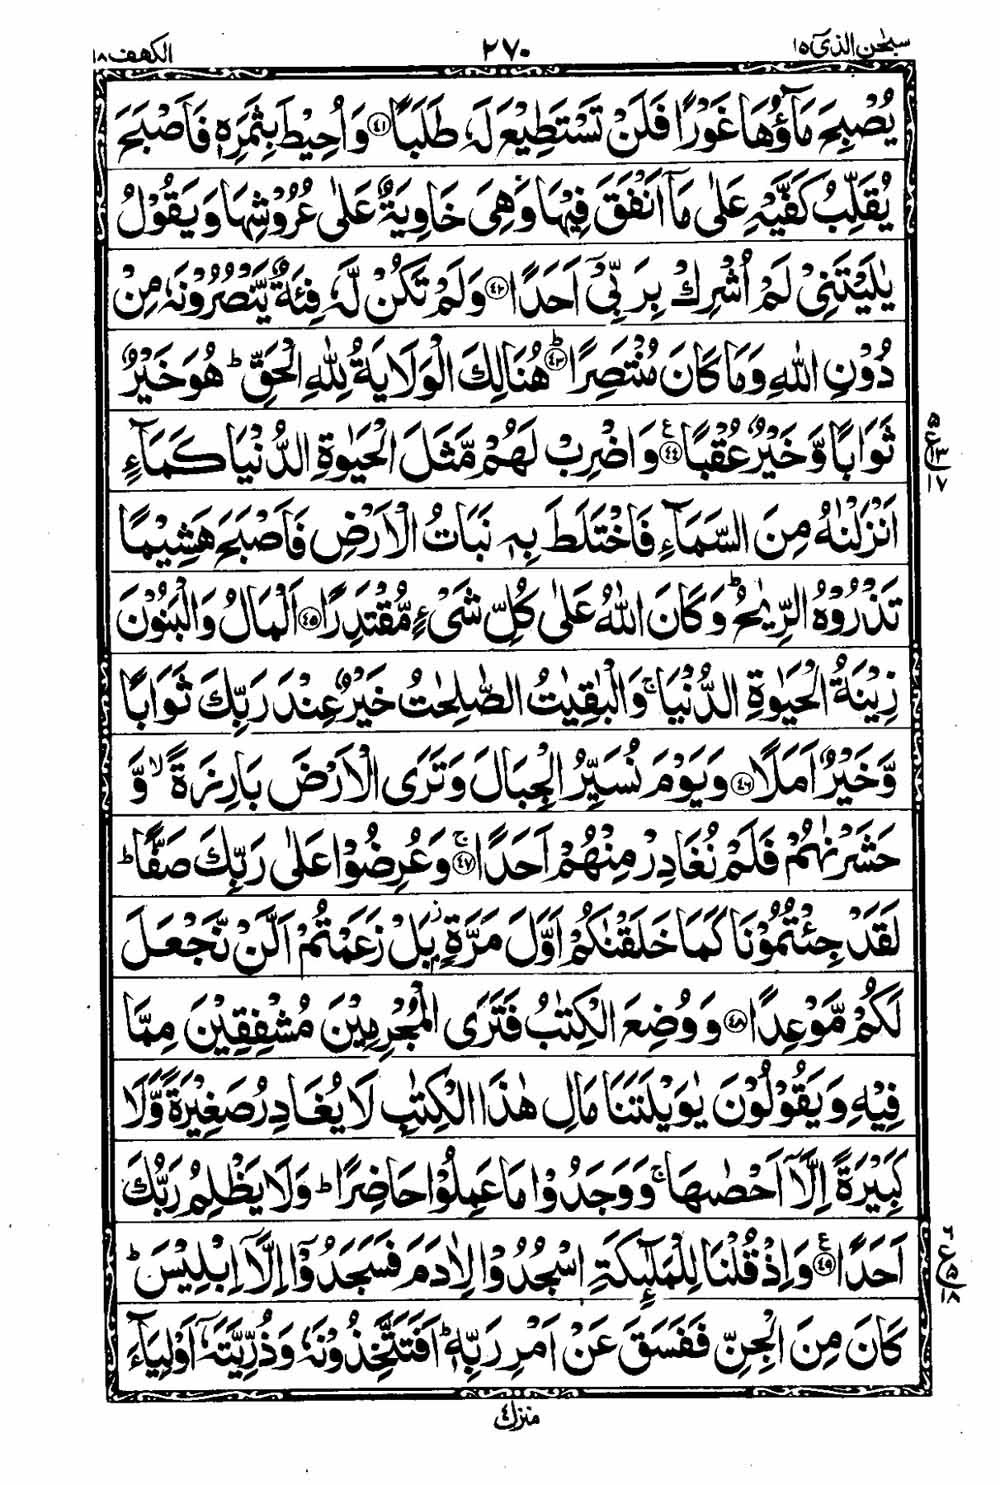 سبحٰن الذی ١٥ ٢٧٠ الكهف ١٨
يُصْبِحَ مَآؤُهَا غَوْرًا فَلَنْ تَسْتَطِيْعَ لَهٗ طَلَبًا ﴿٤١﴾ وَاُحِيْطَ بِثَمَرِهٖ فَاَصْبَحَ
يُقَلِّبُ كَفَّيْهِ عَلٰى مَآ اَنْفَقَ فِيْهَا وَهِيَ خَاوِيَةٌ عَلٰى عُرُوْشِهَا وَيَقُوْلُ
يٰلَيْتَنِيْ لَمْ اُشْرِكْ بِرَبِّيْٓ اَحَدًا ﴿٤٢﴾ وَلَمْ تَكُنْ لَّهٗ فِئَةٌ يَّنْصُرُوْنَهٗ مِنْ
دُوْنِ اللّٰهِ وَمَا كَانَ مُنْتَصِرًا ﴿٤٣﴾ؕ هُنَالِكَ الْوَلَايَةُ لِلّٰهِ الْحَقِّ ؕ هُوَ خَيْرٌ
ثَوَابًا وَّخَيْرٌ عُقْبًا ﴿٤٤﴾ع وَاضْرِبْ لَهُمْ مَّثَلَ الْحَيٰوةِ الدُّنْيَا كَمَآءٍ
٥ ع ١٣ ١٧
اَنْزَلْنٰهُ مِنَ السَّمَآءِ فَاخْتَلَطَ بِهٖ نَبَاتُ الْاَرْضِ فَاَصْبَحَ هَشِيْمًا
تَذْرُوْهُ الرِّيٰحُ ؕ وَكَانَ اللّٰهُ عَلٰى كُلِّ شَيْءٍ مُّقْتَدِرًا ﴿٤٥﴾ اَلْمَالُ وَالْبَنُوْنَ
زِيْنَةُ الْحَيٰوةِ الدُّنْيَا ۚ وَالْبٰقِيٰتُ الصّٰلِحٰتُ خَيْرٌ عِنْدَ رَبِّكَ ثَوَابًا
وَّخَيْرٌ اَمَلًا ﴿٤٦﴾ وَيَوْمَ نُسَيِّرُ الْجِبَالَ وَتَرَى الْاَرْضَ بَارِزَةً ۙ وَّ
حَشَرْنٰهُمْ فَلَمْ نُغَادِرْ مِنْهُمْ اَحَدًا ﴿٤٧﴾ۚ وَعُرِضُوْا عَلٰى رَبِّكَ صَفًّا ؕ
لَقَدْ جِئْتُمُوْنَا كَمَا خَلَقْنٰكُمْ اَوَّلَ مَرَّةٍۢ ز بَلْ زَعَمْتُمْ اَلَّنْ نَّجْعَلَ
لَكُمْ مَّوْعِدًا ﴿٤٨﴾ وَوُضِعَ الْكِتٰبُ فَتَرَى الْمُجْرِمِيْنَ مُشْفِقِيْنَ مِمَّا
فِيْهِ وَيَقُوْلُوْنَ يٰوَيْلَتَنَا مَالِ هٰذَا الْكِتٰبِ لَا يُغَادِرُ صَغِيْرَةً وَّلَا
كَبِيْرَةً اِلَّآ اَحْصٰىهَا ۚ وَوَجَدُوْا مَا عَمِلُوْا حَاضِرًا ؕ وَلَا يَظْلِمُ رَبُّكَ
اَحَدًا ﴿٤٩﴾ع وَاِذْ قُلْنَا لِلْمَلٰٓئِكَةِ اسْجُدُوْا لِاٰدَمَ فَسَجَدُوْٓا اِلَّآ اِبْلِيْسَ ؕ
٦ ع ٥ ١٨
كَانَ مِنَ الْجِنِّ فَفَسَقَ عَنْ اَمْرِ رَبِّهٖ ؕ اَفَتَتَّخِذُوْنَهٗ وَذُرِّيَّتَهٗٓ اَوْلِيَآءَ
منزل ٤